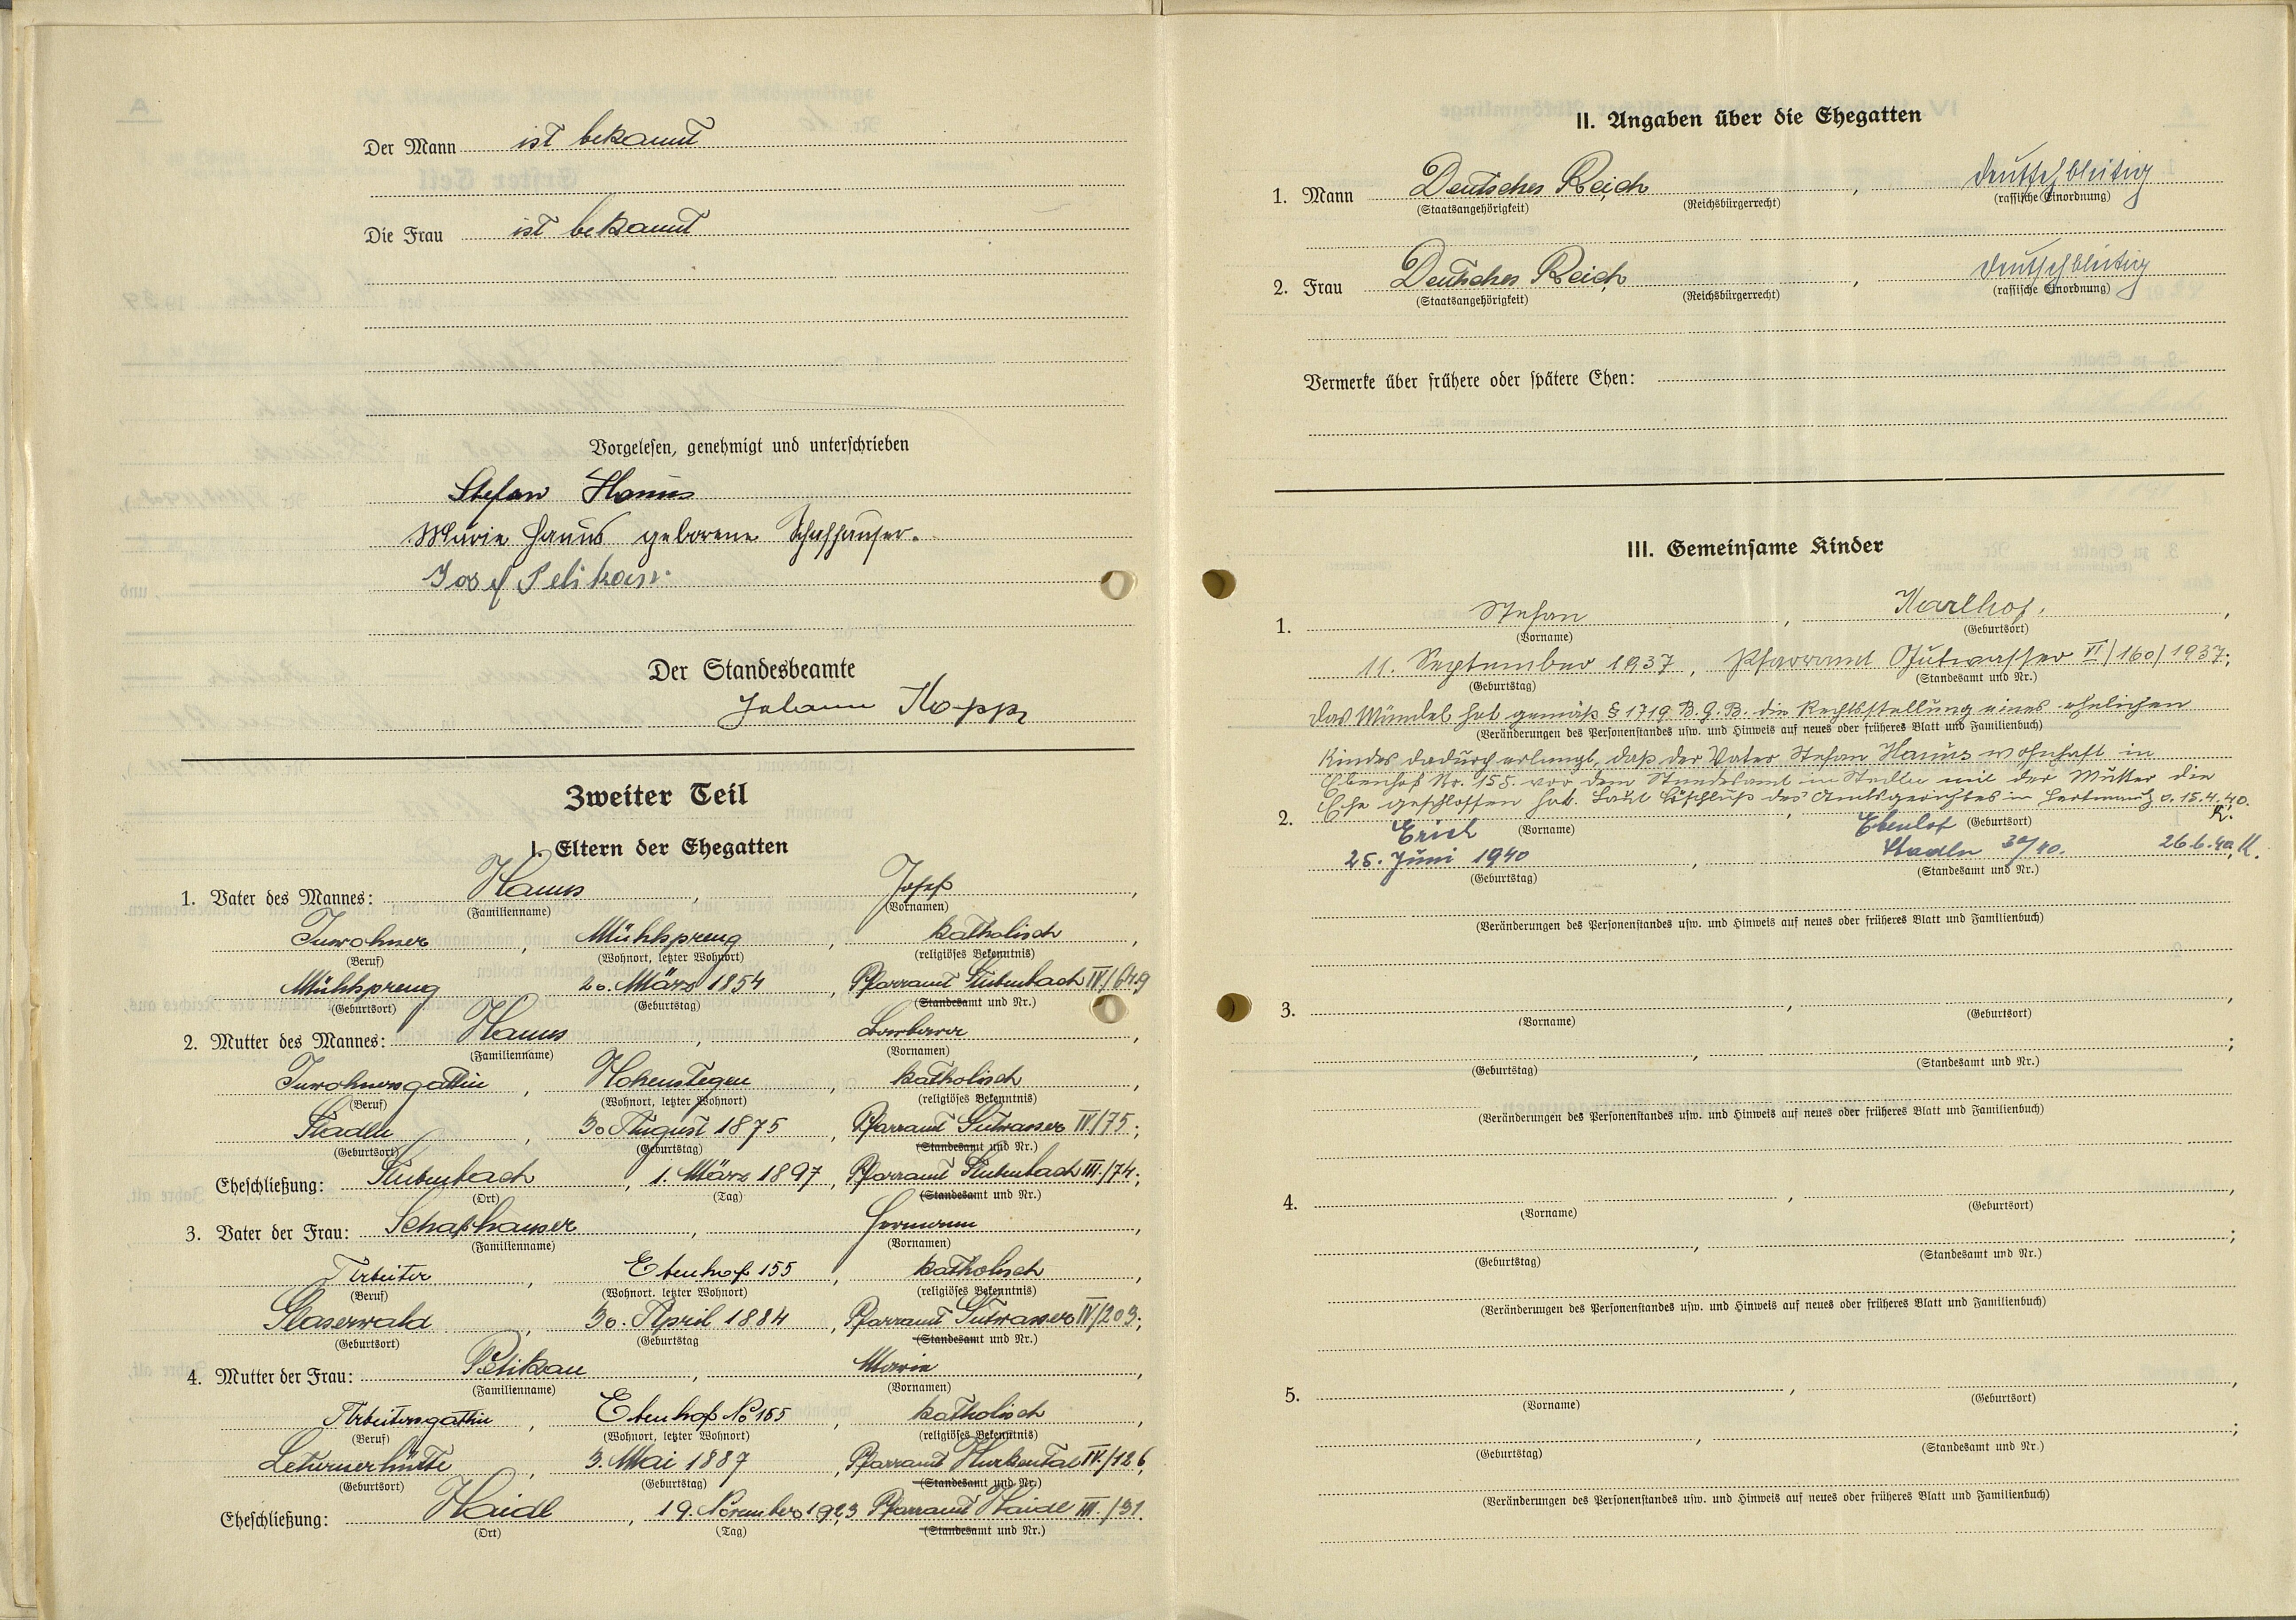 Der Mann ist bekannt
Die Frau ist bekannt
Vorgelesen, genehmigt und unterschrieben
Stefan Hanus
Marie Hanus geborene Schafhauser.
Josef Pelikan.
Der Standesbeamte
Johann Kopp
Zweiter Teil
I. Eltern der Ehegatten
1. Vater des Mannes: Hanus, Josef,
(Familienname) (Vornamen)
Inwohner, Mühlspreng, katholisch,
(Beruf) (Wohnort, letzter Wohnort) (religiöses Bekenntnis)
Mühlspreng 20. März 1854, Pfarramt Stubenbach IV/649
(Geburtsort) (Geburtstag) (Standesamt und Nr.)
2. Mutter des Mannes: Hanus, Barbara,
(Familienname) (Vornamen)
Inwohnersgattin, Hohenstegen, katholisch,
(Beruf) (Wohnort, letzter Wohnort) (religiöses Bekenntnis)
Stadln, 30 August 1875, Pfarramt Gutwasser IV/75;
(Geburtsort) (Geburtstag) (Standesamt und Nr.)
Eheschließung: Stubenbach, 1. März 1897, Pfarramt Stubenbach III./74;
(Ort) (Tag) (Standesamt und Nr.)
3. Vater der Frau: Schafhauser, Hermann,
(Familienname) (Vornamen)
Arbeiter, Ebenhof 155, katholisch,
(Beruf) (Wohnort. letzter Wohnort) (religiöses Bekenntnis)
Glaserwald, 30. April 1884, Pfarramt Gutwasser IV/203;
(Geburtsort) (Geburtstag (Standesamt und Nr.)
4. Mutter der Frau: Pelikan, Marie,
(Familienname) (Vornamen)
Arbeitersgattin, Ebenhof No 155, katholisch,
(Beruf) (Wohnort, letzter Wohnort) (religiöses Bekenntnis)
Leturnerhütte, 3. Mai 1887, Pfarramt Hurkental IV./126,
(Geburtsort) (Geburtstag) (Standesamt und Nr.)
Eheschließung: Haidl, 19. November 1923 Pfarramt Haidl III./31.
(Ort) (Tag) (Standesamt und Nr.)
II. Angaben über die Ehegatten
1. Mann Deutsches Reich, deutschblütig
(Staatsangehörigkeit) (Reichsbürgerrecht) (rassische Einordnung)
2. Frau Deutsches Reich, deutschblütig
(Staatsangehörigkeit) (Reichsbürgerrecht) (rassische Einordnung)
Vermerke über frühere oder spätere Ehen:
III. Gemeinsame Kinder
1. Stefan, Karlhof.,
(Vorname) (Geburtsort)
11. September 1937, Pfarramt Gutwasser VI/160/1937;
(Geburtstag) (Standesamt und Nr.)
Das Mündel hat gemäß § 1719 B.G.B. die Rechtsstellung eines ehelichen
(Veränderungen des Personenstandes usw. und Hinweis auf neues oder früheres Blatt und Familienbuch)
Kindes dadurch erlangt, daß der Vater Stefan Hanus wohnhaft in
Ebenhof Nr. 155. vor dem Standesamt in Stadln mit der Mutter die
Ehe geschlossen hat. Laut Beschluß des Amtsgerichtes in Hartmanitz v. 15.4.40.
K.
2. Erich Ebenhof
(Vorname) (Geburtsort)
25. Juni 1940, Stadln 30/40. 26.6.40, K.
(Geburtstag) (Standesamt und Nr.)
(Veränderungen des Personenstandes usw. und Hinweis auf neues oder früheres Blatt und Familienbuch)
3.
(Vorname) (Geburtsort)
(Geburtstag) (Standesamt und Nr.)
(Veränderungen des Personenstandes usw. und Hinweis auf neues oder früheres Blatt und Familienbuch)
4.
(Vorname) (Geburtsort)
(Geburtstag) (Standesamt und Nr.)
(Veränderungen des Personenstandes usw. und Hinweis auf neues oder früheres Blatt und Familienbuch)
5.
(Vorname) (Geburtsort)
(Geburtstag) (Standesamt und Nr.)
(Veränderungen des Personenstandes usw. und Hinweis auf neues oder früheres Blatt und Familienbuch)